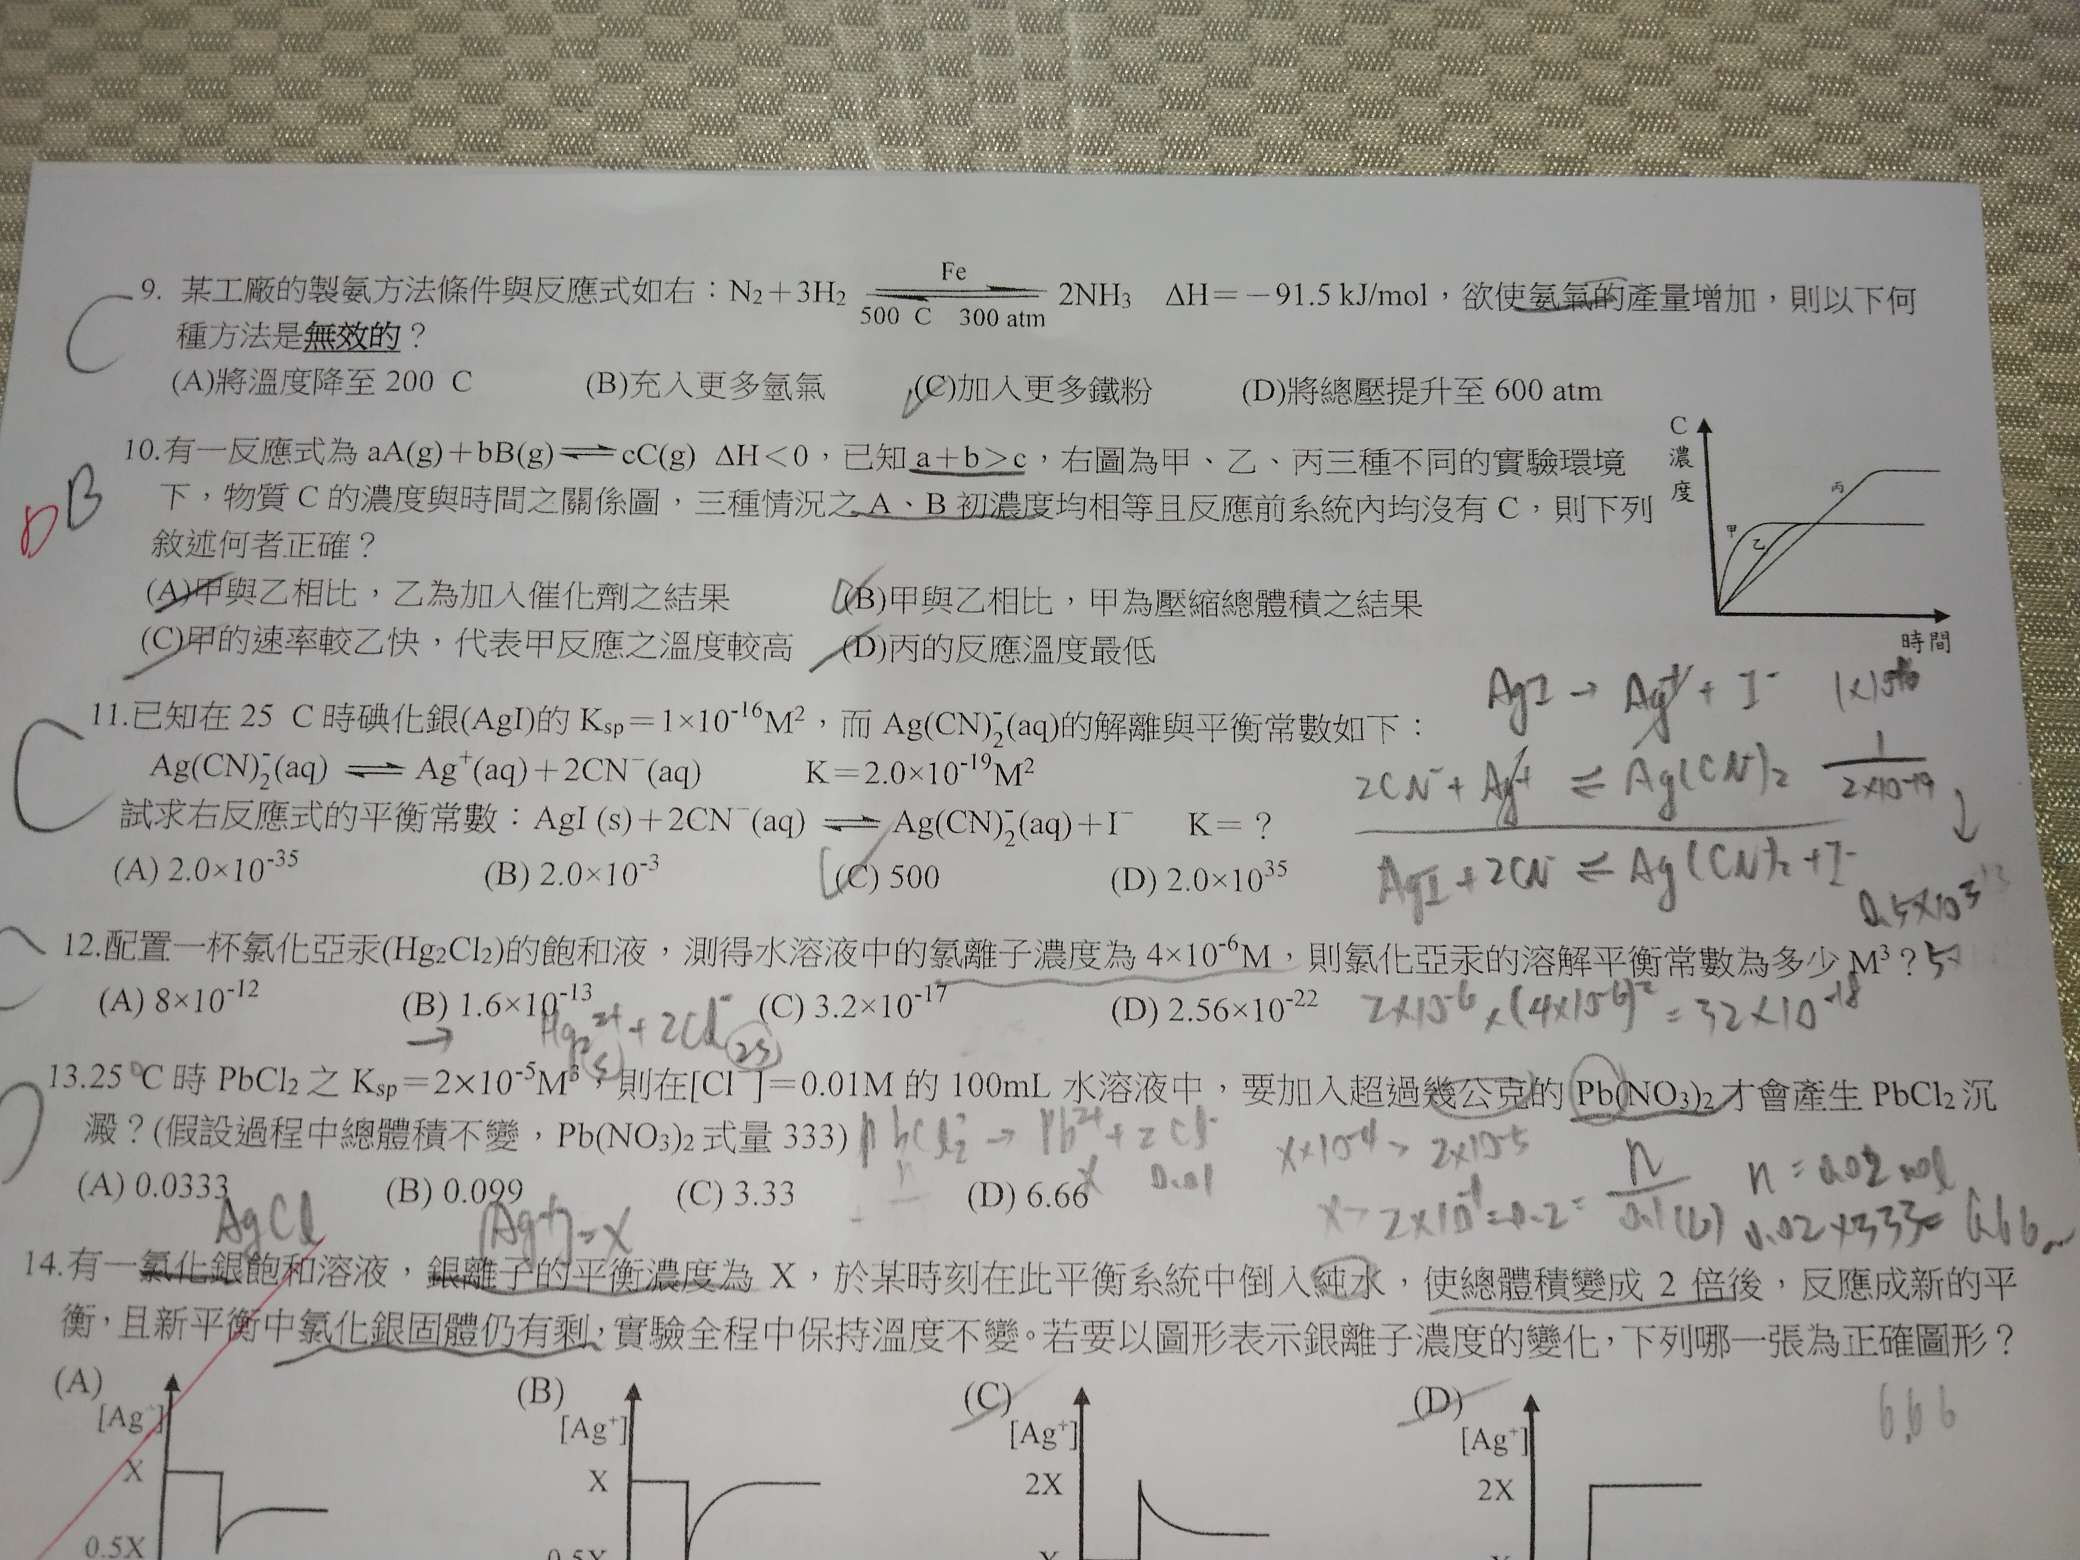 9. 某工廠的製氨方法條件與反應式如右：N₂＋3H₂ ⇌ 2NH₃ ΔH＝－91.5 kJ/mol，欲使氨氣的產量增加，則以下何
Fe
500 C 300 atm
種方法是無效的？
C
(A)將溫度降至 200 C (B)充入更多氫氣 (C)加入更多鐵粉 (D)將總壓提升至 600 atm
10.有一反應式為 aA(g)＋bB(g)⇌cC(g) ΔH＜0，已知 a＋b＞c，右圖為甲、乙、丙三種不同的實驗環境
下，物質 C 的濃度與時間之關係圖，三種情況之 A、B 初濃度均相等且反應前系統內均沒有 C，則下列
敘述何者正確？
D B
(A)甲與乙相比，乙為加入催化劑之結果 (B)甲與乙相比，甲為壓縮總體積之結果
(C)甲的速率較乙快，代表甲反應之溫度較高 (D)丙的反應溫度最低
C
濃
度
甲
乙
丙
時間
11.已知在 25 C 時碘化銀(AgI)的 Ksp＝1×10⁻¹⁶M²，而 Ag(CN)₂⁻(aq)的解離與平衡常數如下：
Ag(CN)₂⁻(aq) ⇌ Ag⁺(aq)＋2CN⁻(aq) K＝2.0×10⁻¹⁹M²
試求右反應式的平衡常數：AgI (s)＋2CN⁻(aq) ⇌ Ag(CN)₂⁻(aq)＋I⁻ K＝？
C
(A) 2.0×10⁻³⁵ (B) 2.0×10⁻³ (C) 500 (D) 2.0×10³⁵
AgI → Ag⁺ + I⁻
2CN⁻ + Ag⁺ ⇌ Ag(CN)₂ 1/2×10⁻¹⁹
AgI + 2CN ⇌ Ag(CN)₂ + I⁻
12.配置一杯氯化亞汞(Hg₂Cl₂)的飽和液，測得水溶液中的氯離子濃度為 4×10⁻⁶M，則氯化亞汞的溶解平衡常數為多少 M³？
(A) 8×10⁻¹² (B) 1.6×10⁻¹³ (C) 3.2×10⁻¹⁷ (D) 2.56×10⁻²²
2×10⁻⁶ × (4×10⁻⁶)² = 32×10⁻¹⁸
→ Hg₂²⁺ + 2Cl⁻
(s) (2s)
13.25 °C 時 PbCl₂ 之 Ksp＝2×10⁻⁵M³，則在[Cl⁻]＝0.01M 的 100mL 水溶液中，要加入超過幾公克的 Pb(NO₃)₂ 才會產生 PbCl₂ 沉
澱？(假設過程中總體積不變，Pb(NO₃)₂ 式量 333)
PbCl₂ → Pb²⁺ + 2Cl⁻
x 0.01
x×10⁻⁴ > 2×10⁻⁵
x > 2×10⁻¹ = 0.2 = n/0.1(L)
n = 0.02 mol
0.02×333 = 6.66
(A) 0.0333 (B) 0.099 (C) 3.33 (D) 6.66
AgCl [Ag⁺]=x
14.有一氯化銀飽和溶液，銀離子的平衡濃度為 X，於某時刻在此平衡系統中倒入純水，使總體積變成 2 倍後，反應成新的平
衡，且新平衡中氯化銀固體仍有剩；實驗全程中保持溫度不變。若要以圖形表示銀離子濃度的變化，下列哪一張為正確圖形？
6.66
(A) (B) (C) (D)
[Ag⁺] [Ag⁺] [Ag⁺] [Ag⁺]
X X 2X 2X
0.5X 0.5X X X